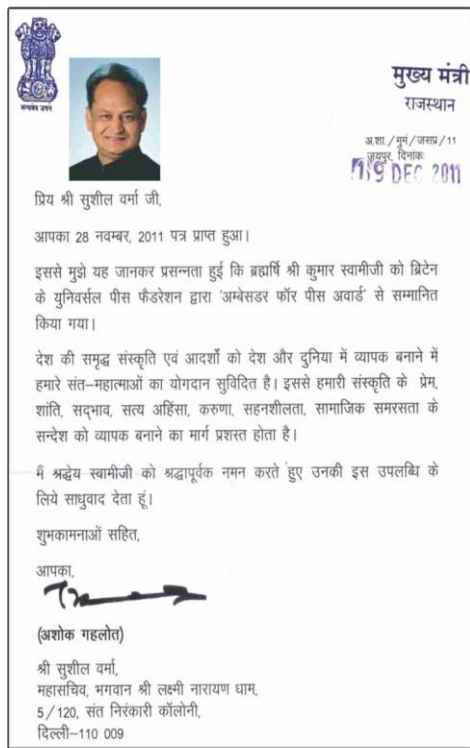 सत्यमेव जयते
मुख्य मंत्री
राजस्थान
अ.शा./मुमं/जसप्र/11
जयपुर, दिनांक:
19 DEC 2011
प्रिय श्री सुशील वर्मा जी,
आपका 28 नवम्बर, 2011 पत्र प्राप्त हुआ।
इससे मुझे यह जानकर प्रसन्नता हुई कि ब्रह्मर्षि श्री कुमार स्वामीजी को ब्रिटेन
के युनिवर्सल पीस फैडरेशन द्वारा 'अम्बेसडर फॉर पीस अवार्ड' से सम्मानित
किया गया।
देश की समृद्ध संस्कृति एवं आदर्शों को देश और दुनिया में व्यापक बनाने में
हमारे संत–महात्माओं का योगदान सुविदित है। इससे हमारी संस्कृति के प्रेम,
शांति, सद्‌भाव, सत्य अहिंसा, करुणा, सहनशीलता, सामाजिक समरसता के
सन्देश को व्यापक बनाने का मार्ग प्रशस्त होता है।
मैं श्रद्धेय स्वामीजी को श्रद्धापूर्वक नमन करते हुए उनकी इस उपलब्धि के
लिये साधुवाद देता हूं।
शुभकामनाओं सहित,
आपका,
(अशोक गहलोत)
श्री सुशील वर्मा,
महासचिव, भगवान श्री लक्ष्मी नारायण धाम,
5/120, संत निरंकारी कॉलोनी,
दिल्ली–110 009